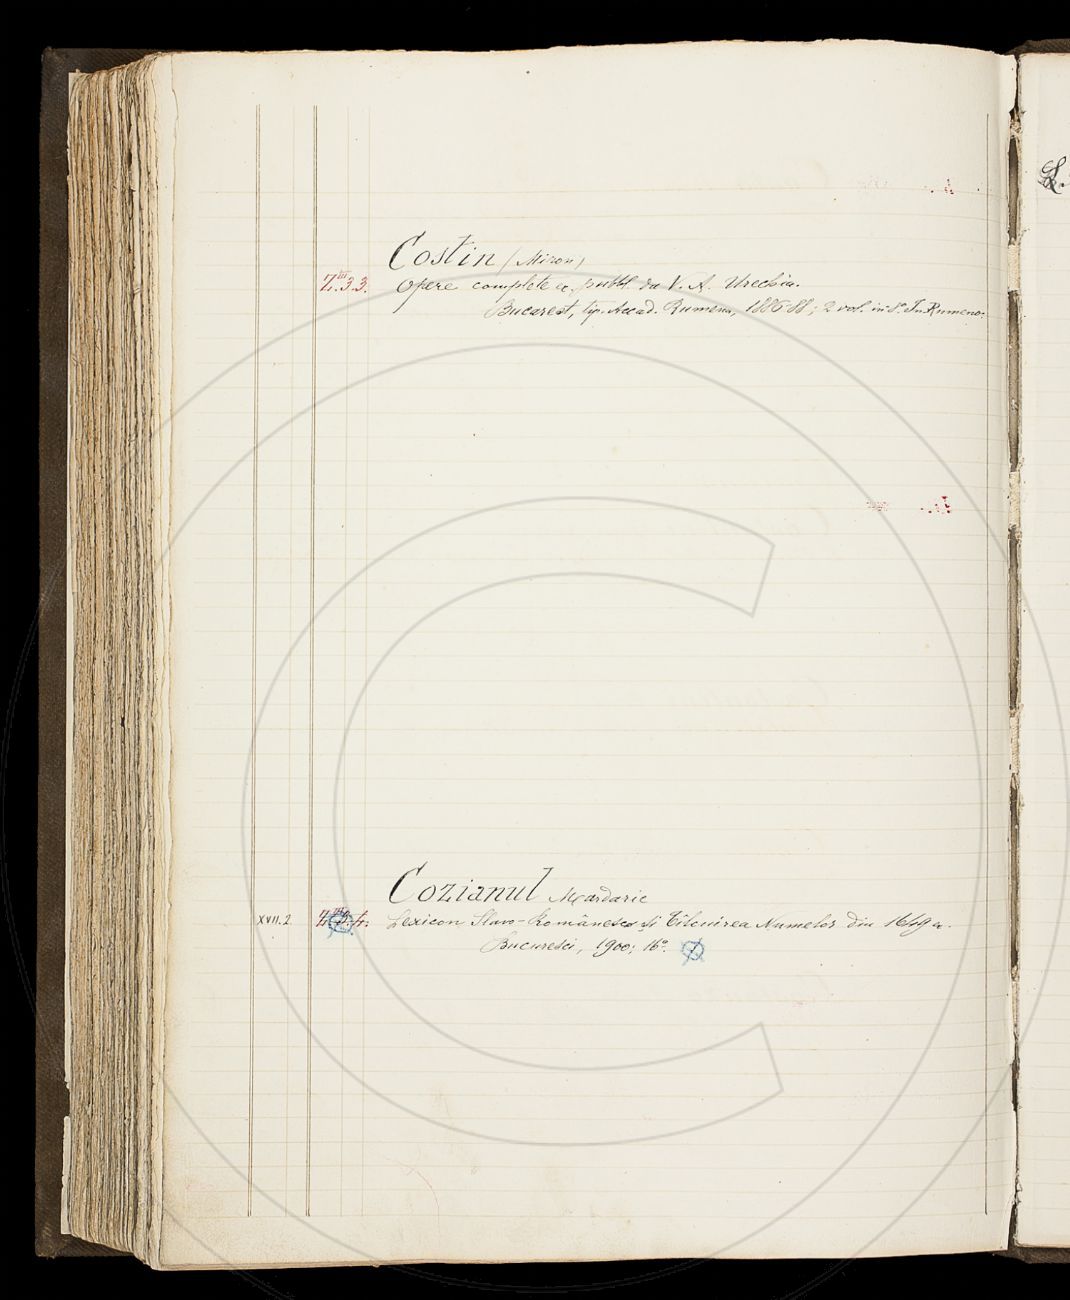 Costin (Miron)
Z.III.3.3. Opere complete &. pubbl. da V. A. Urechia.
Bucarest, tip. Accad. Rumena, 1886-88; 2 vol. in 8°. In Rumeno.
Cozianul Mardarie
XVII.2 Z.III.3.4. Lexicon Slavo-Românesco și Tilcuirea Numelor din 1649 a.
Bucuresci, 1900; 16°.